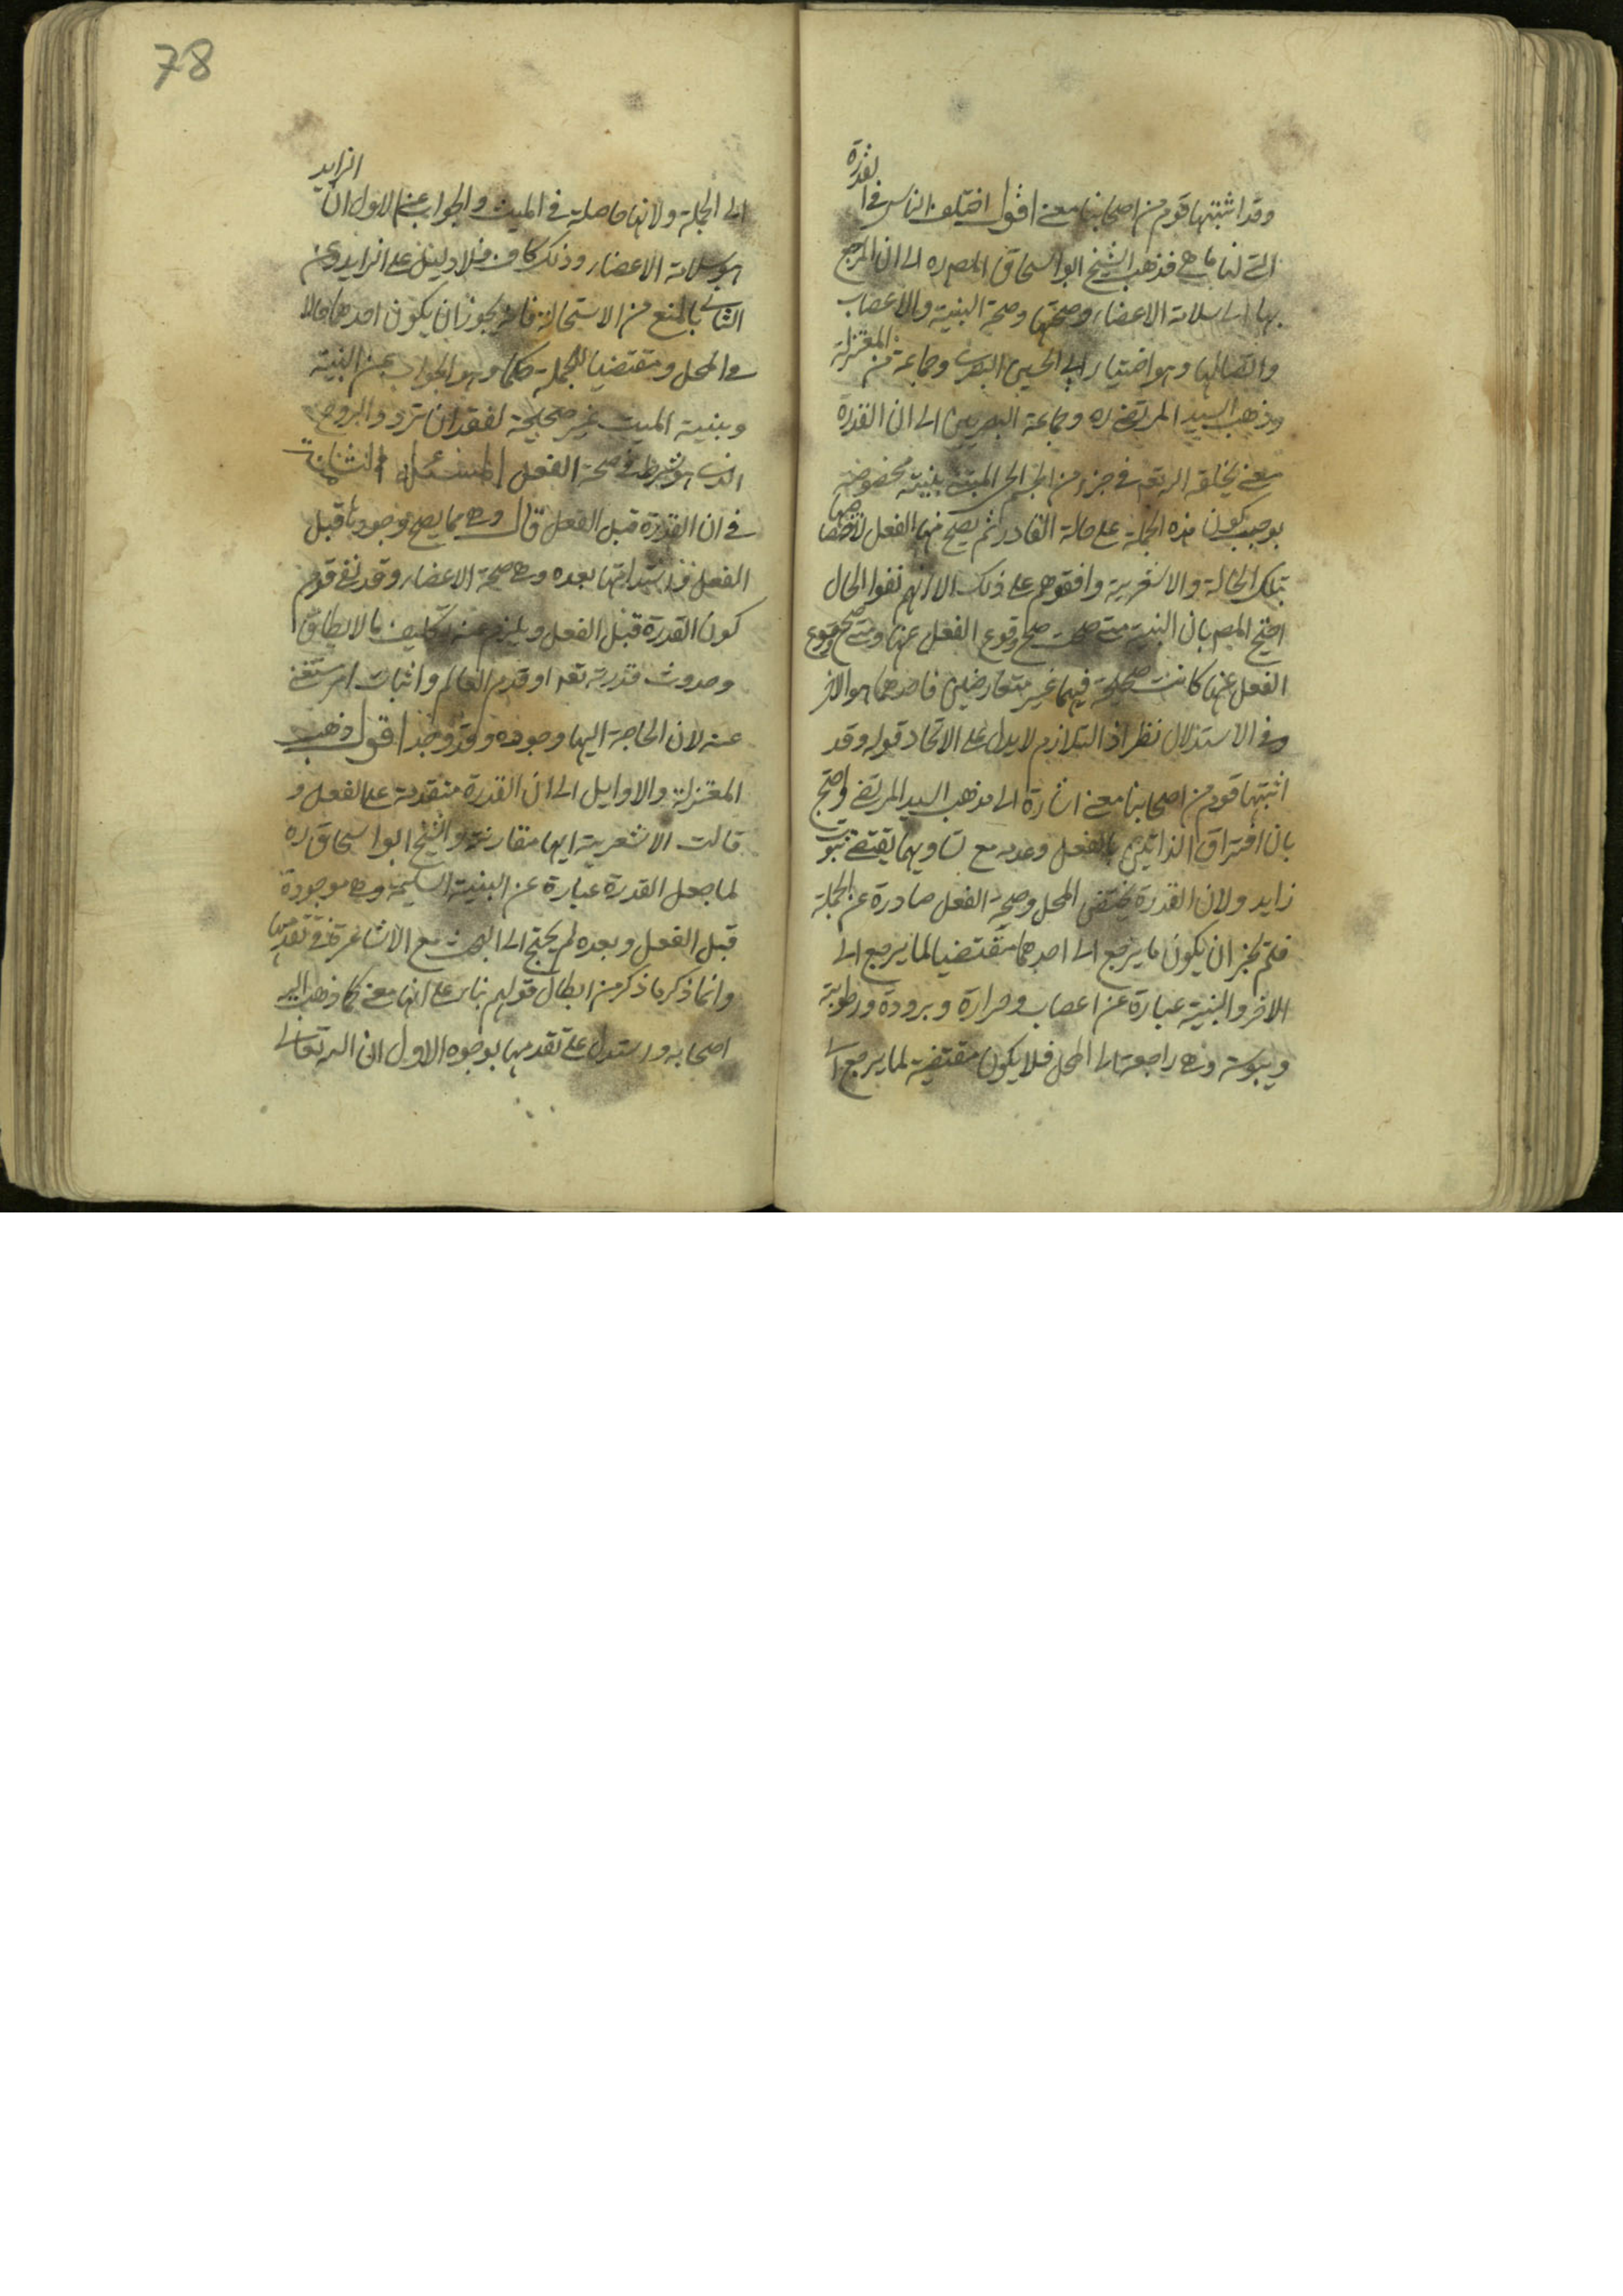 وقد اثبتها قوم من اصحابنا معنى اقول اختلف الناس في القدرة
التي لنا ما هي فذهب الشيخ ابو اسحاق المص ره الى ان المرجع
بها الى سلامة الاعضاء وصحتها وصحة البنية والاعصاب
واتصالها وهو اختيار ابي الحسين البصري وجماعة من المعتزلة
وذهب السيد المرتضى ره وجماعة البصريين الى ان القدرة
معنى يخلقه الله تعه في جزء من الحي المبنية بنية مخصوصة
يوجب كون هذه الجملة على حالة القادر ثم يصح منها الفعل لاختصاصها
بتلك الحالة والاشعرية وافقوهم على ذلك الا انهم نفوا الحال
احتج المص بان البنية متى صحت صح وقوع الفعل عنها ومتى صح وقوع
الفعل عنها كانت صحيحة فهما غير متعارضين فاحدهما هو الاخر
وفي الاستدلال نظر اذ التلازم لا يدل على الاتحاد قوله وقد
اثبتها قوم من اصحابنا معنى اشارة الى مذهب السيد المرتضى واحتج
بان افتراق الذاتين بالفعل وعدمه مع تساويهما يقتضي ثبوت
زايد ولان القدرة يقتضي المحل وصحة الفعل صادرة عن الجملة
فلم يجز ان يكون ما يرجع الى احدهما مقتضيا لما يرجع الى
الاخر والبنية عبارة عن اعصاب وحرارة وبرودة ورطوبة
ويبوسة وهي راجعة الى المحل فلا يكون مقتضية لما يرجع الى
78
الى الجملة ولانها حاصلة في الميت والجواب عن الاول ان الزايد
هو سلامة الاعضاء وذلك كاف فلا دليل على الزايد وعن
الثاني بالمنع من الاستحالة فانه يجوز ان يكون احدهما حالا
في المحل ومقتضيا للجملة حكما وهو الجواب عن البنية
وبنية الميت غير صحيحة لفقدان تردد الروح
الذي هو شرط في صحة الفعل المسئلة الثانية
في ان القدرة قبل الفعل قال وهي مما يصح وجودها قبل
الفعل واستدامتها بعده وهي صحة الاعضاء وقد نفى قوم
كون القدرة قبل الفعل ويلزم عنه تكليف ما لا يطاق
وحدوث قدرته تعه او قدم العالم واثبات امر مستغنى
عنه لان الحاجة اليها وجوده وقد وجد اقول ذهب
المعتزلة والاوايل الى ان القدرة متقدمة على الفعل و
قالت الاشعرية انها مقارنة والشيخ ابو اسحاق ره
لما جعل القدرة عبارة عن البنية السليمة وهي موجودة
قبل الفعل وبعده لم يحتج الى البحث مع الاشاعرة في تقدمها
وانما ذكر ما ذكر من ابطال قولهم بناء على انها معنى كما ذهب اليه
اصحابه واستدل على تقدمها بوجوه الاول ان الله تعالى